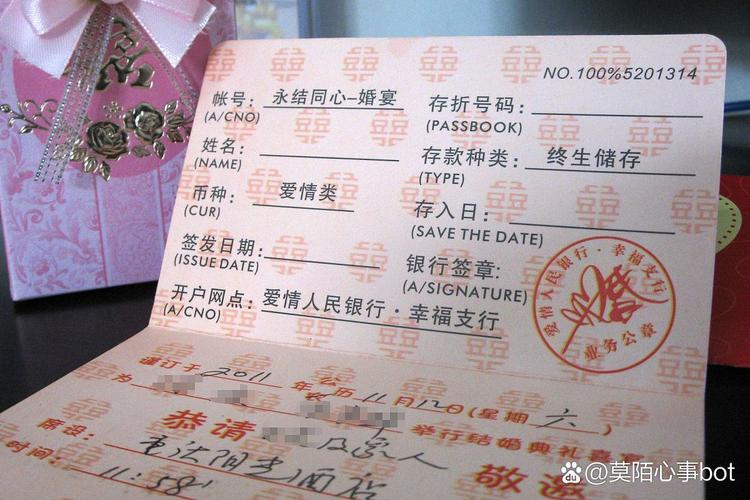 NO.100%5201314
帐号: 永结同心-婚宴 存折号码:
(A/CNO) (PASSBOOK)
姓名: 存款种类: 终生储存
(NAME) (TYPE)
币种: 爱情类 存入日:
(CUR) (SAVE THE DATE)
签发日期: 银行签章:
(ISSUE DATE) (A/SIGNATURE)
开户网点: 爱情人民银行·幸福支行
(A/CNO)
爱情人民银行·幸福支行
业务公章
谨订于2011年公历11月12日(星期六)
为 举行结婚典礼喜宴
恭请 及家人
席设: 阳光酒店 敬邀
时间: 11:58
莫陌心事bot